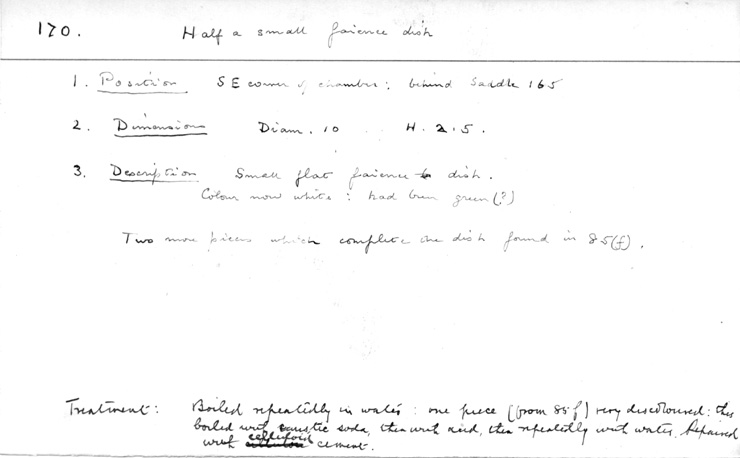 170. Half a small faience dish
1. Position SE corner of chamber; behind Saddle 165
2. Dimensions Diam. 10 H. 2.5.
3. Description Small flat faience dish.
Colour now white: had been green (?)
Two more pieces which complete the dish found in 85(f).
Treatment: Boiled repeatedly in water: one piece (from 85f) very discoloured: this
boiled with caustic soda, then with acid, then repeatedly with water. Repaired
with celluloid cement.